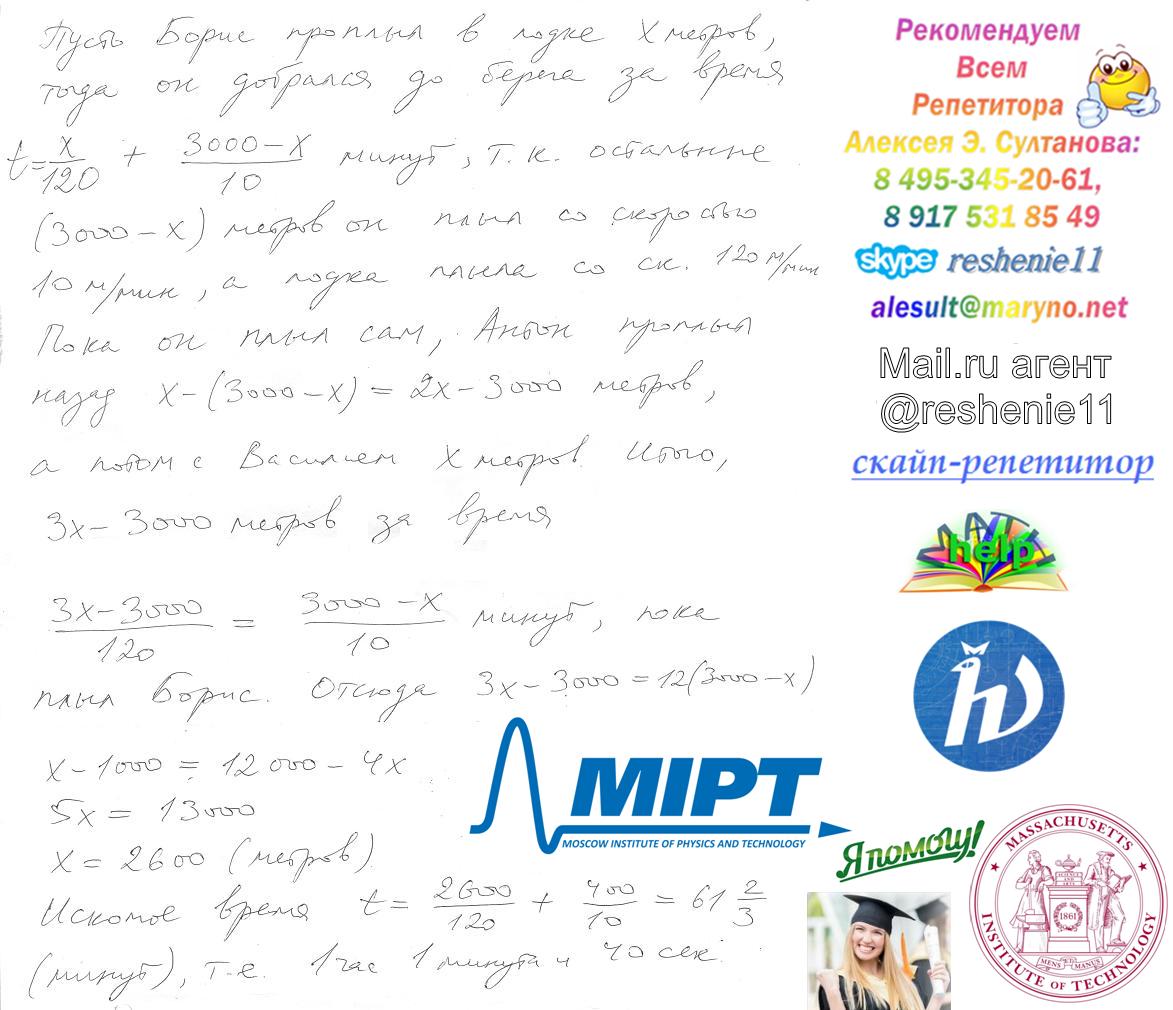 Пусть Борис проплыл в лодке X метров,
тогда он добрался до берега за время
t = x/120 + 3000 – x/10 минут, т.к. остальные
(3000 – x) метров он плыл со скоростью
10 м/мин, а лодка плыла со ск. 120 м/мин
Пока он плыл сам, Антон проплыл
назад x – (3000 – x) = 2x – 3000 метров,
а потом с Василием X метров. Итого,
3x – 3000 метров за время
3x – 3000/120 = 3000 – x/10 минут, пока
плыл Борис. Отсюда 3x – 3000 = 12(3000 – x)
x – 1000 = 12000 – 4x
5x = 13000
x = 2600 (метров)
Искомое время t = 2600/120 + 400/10 = 61 2/3
(минут), т.е. 1 час 1 минута и 40 сек.
Рекомендуем
Всем
Репетитора
Алексея Э. Султанова:
8 495-345-20-61,
8 917 531 85 49
skype reshenie11
alesult@maryno.net
Mail.ru агент
@reshenie11
скайп-репетитор
MATH
help
MIPT
MOSCOW INSTITUTE OF PHYSICS AND TECHNOLOGY
Я помогу!
MASSACHUSETTS
INSTITUTE OF TECHNOLOGY
SCIENCE AND ARTS
1861
MENS ET MANUS